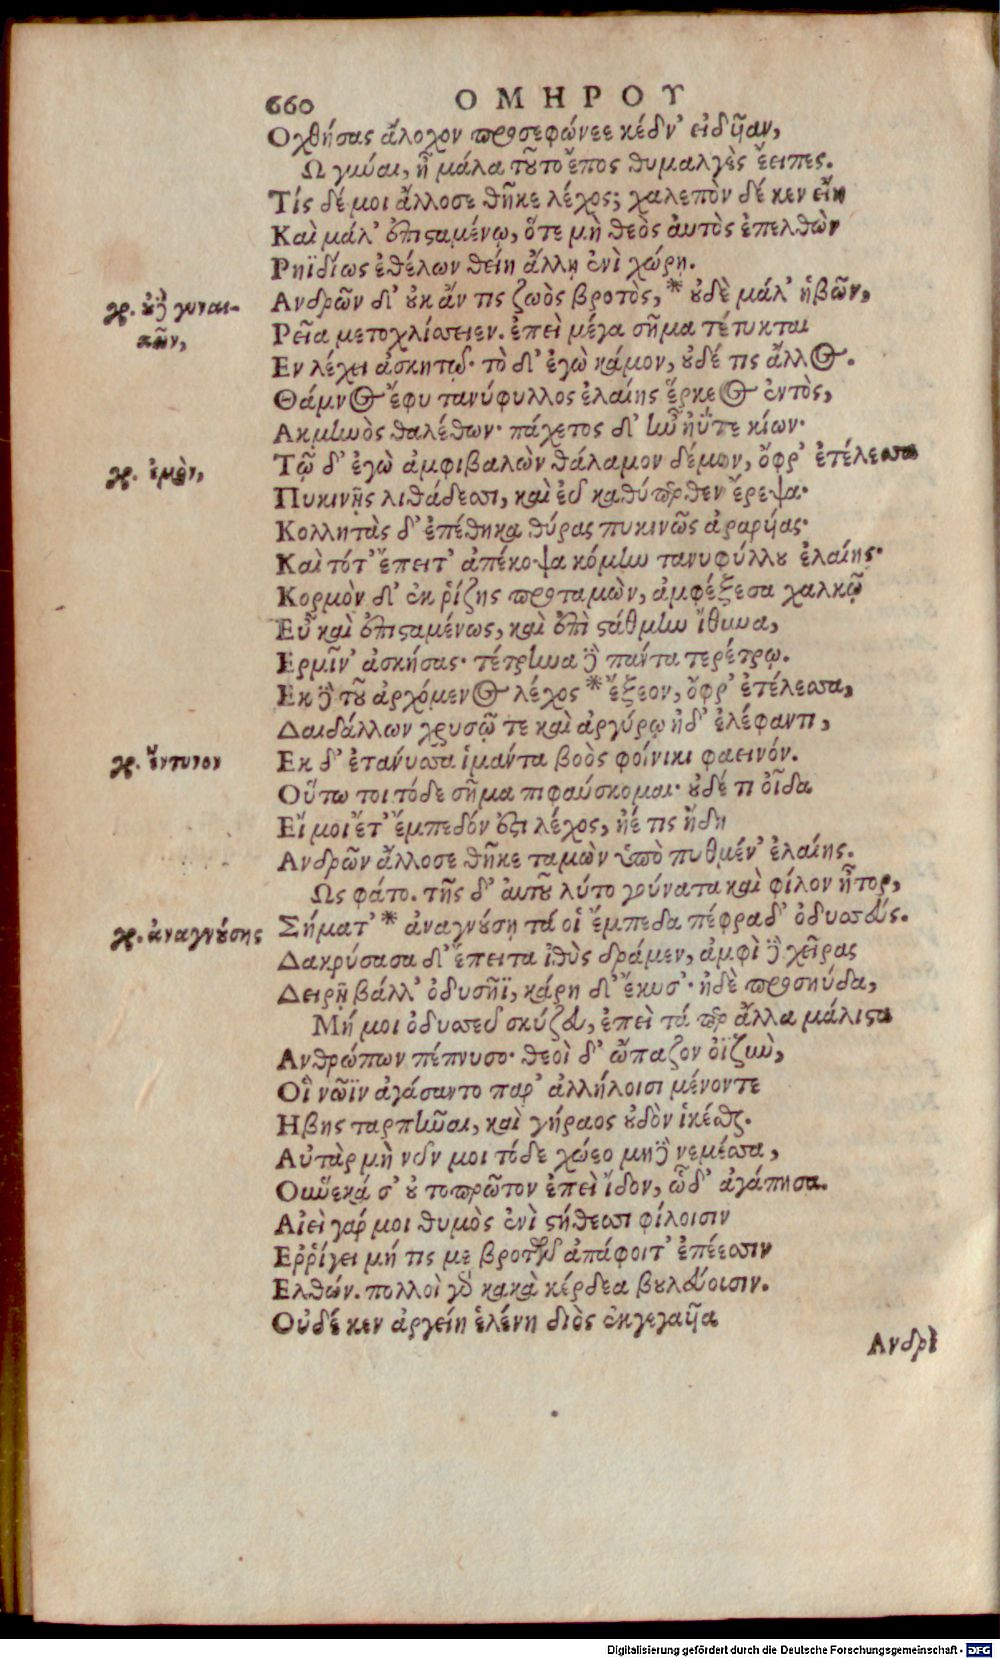 660 ΟΜΗΡΟΥ
Οχθήσας ἄλοχον προσεφώνεε κέδν' εἰδυῖαν,
Ω γύναι, ἦ μάλα τοῦτο ἔπος θυμαλγὲς ἔειπες.
Τίς δέ μοι ἄλλοσε θῆκε λέχος; χαλεπὸν δέ κεν εἴη
Καὶ μάλ' ἐπισαμένῳ, ὅτε μὴ θεὸς αὐτὸς ἐπελθὼν
Ρηϊδίως ἐθέλων θείη ἄλλῃ ἐνὶ χώρῃ.
γρ. οὐδὲ γυναι-
κῶν,
Ανδρῶν δ' οὐκ ἄν τις ζωὸς βροτὸς, * οὐδὲ μάλ' ἡβῶν,
Ρεῖα μετοχλίσσειεν. ἐπεὶ μέγα σῆμα τέτυκται
Εν λέχει ἀσκητῷ· τὸ δ' ἐγὼ κάμον, οὐδέ τις ἄλλος.
Θάμνος ἔφυ τανύφυλλος ἐλαίης ἕρκεος ἐντὸς,
Ακμηνὸς θαλέθων· πάχετος δ' ἦν ἠΰτε κίων·
γρ. ἐμὸν,
Τῷ δ' ἐγὼ ἀμφιβαλὼν θάλαμον δέμον, ὄφρ' ἐτέλεσσα
Πυκινῇς λιθάδεσσι, καὶ εὖ καθύπερθεν ἔρεψα·
Κολλητὰς δ' ἐπέθηκα θύρας πυκινῶς ἀραρυίας·
Καὶ τότ' ἔπειτ' ἀπέκοψα κόμην τανυφύλλου ἐλαίης·
Κορμὸν δ' ἐκ ῥίζης προταμὼν, ἀμφέξεσα χαλκῷ
Εὖ καὶ ἐπισαμένως, καὶ ἐπὶ στάθμην ἴθυνα,
Ερμῖν' ἀσκήσας· τέτρηνα δὲ πάντα τερέτρῳ.
Εκ δὲ τοῦ ἀρχόμενος λέχος * ἔξεον, ὄφρ' ἐτέλεσσα,
Δαιδάλλων χρυσῷ τε καὶ ἀργύρῳ ἠδ' ἐλέφαντι,
γρ. ἔντυνον
Εκ δ' ἐτανύσσα ἱμάντα βοὸς φοίνικι φαεινόν.
Οὕτω τοι τόδε σῆμα πιφαύσκομαι· οὐδέ τι οἶδα
Εἴ μοι ἔτ' ἔμπεδόν ἐστι λέχος, ἠέ τις ἤδη
Ανδρῶν ἄλλοσε θῆκε ταμὼν ὑπὸ πυθμέν' ἐλαίης.
Ως φάτο. τῆς δ' αὐτοῦ λύτο γούνατα καὶ φίλον ἦτορ,
γρ. ἀναγνούσης
Σήματ' * ἀναγνούσῃ τά οἱ ἔμπεδα πέφραδ' ὀδυσσεύς.
Δακρύσασα δ' ἔπειτα ἰθὺς δράμεν, ἀμφὶ δὲ χεῖρας
Δειρῇ βάλλ' ὀδυσῆϊ, κάρη δ' ἔκυσ'· ἠδὲ προσηύδα,
Μή μοι ὀδυσσεῦ σκύζευ, ἐπεὶ τά περ ἄλλα μάλιστα
Ανθρώπων πέπνυσο· θεοὶ δ' ὤπαζον ὀϊζὺν,
Οἳ νῶϊν ἀγάσαντο παρ' ἀλλήλοισι μένοντε
Ηβης ταρπῆναι, καὶ γήραος οὐδὸν ἱκέσθαι.
Αὐτὰρ μὴ νῦν μοι τόδε χώεο μηδὲ νεμέσσα,
Οὕνεκά σ' οὐ τοπρῶτον ἐπεὶ ἴδον, ὧδ' ἀγάπησα.
Αἰεὶ γάρ μοι θυμὸς ἐνὶ στήθεσσι φίλοισιν
Ερῥίγει μή τις με βροτῶν ἀπάφοιτ' ἐπέεσσιν
Ελθών. πολλοὶ γὰρ κακὰ κέρδεα βουλεύοισιν.
Οὐδέ κεν ἀργείη ἑλένη διὸς ἐκγεγαυῖα
Ανδρὶ
Digitalisierung gefördert durch die Deutsche Forschungsgemeinschaft - DFG